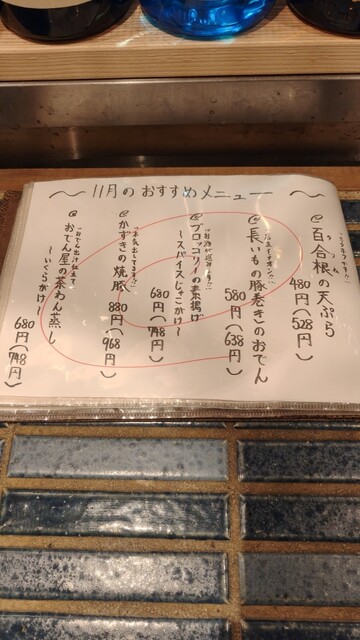 〜 11月のおすすめメニュー 〜
@百合根の天ぷら
480円(528円)
@長いもの豚巻きのおでん
580円(638円)
"お酒が進みます!!"
@ブロッコリーの素揚げ
〜スパイスじゃこかけ〜
680円(748円)
"本気出してます!!"
@かずきの焼豚
880円(968円)
"おでん出汁仕立て"
@おでん屋の茶わん蒸し
〜いくらがけ〜
680円(748円)